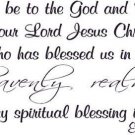 be to the God and
our Lord Jesus Chri
ho has blessed us in
avenly realm
y spiritual blessing i
E